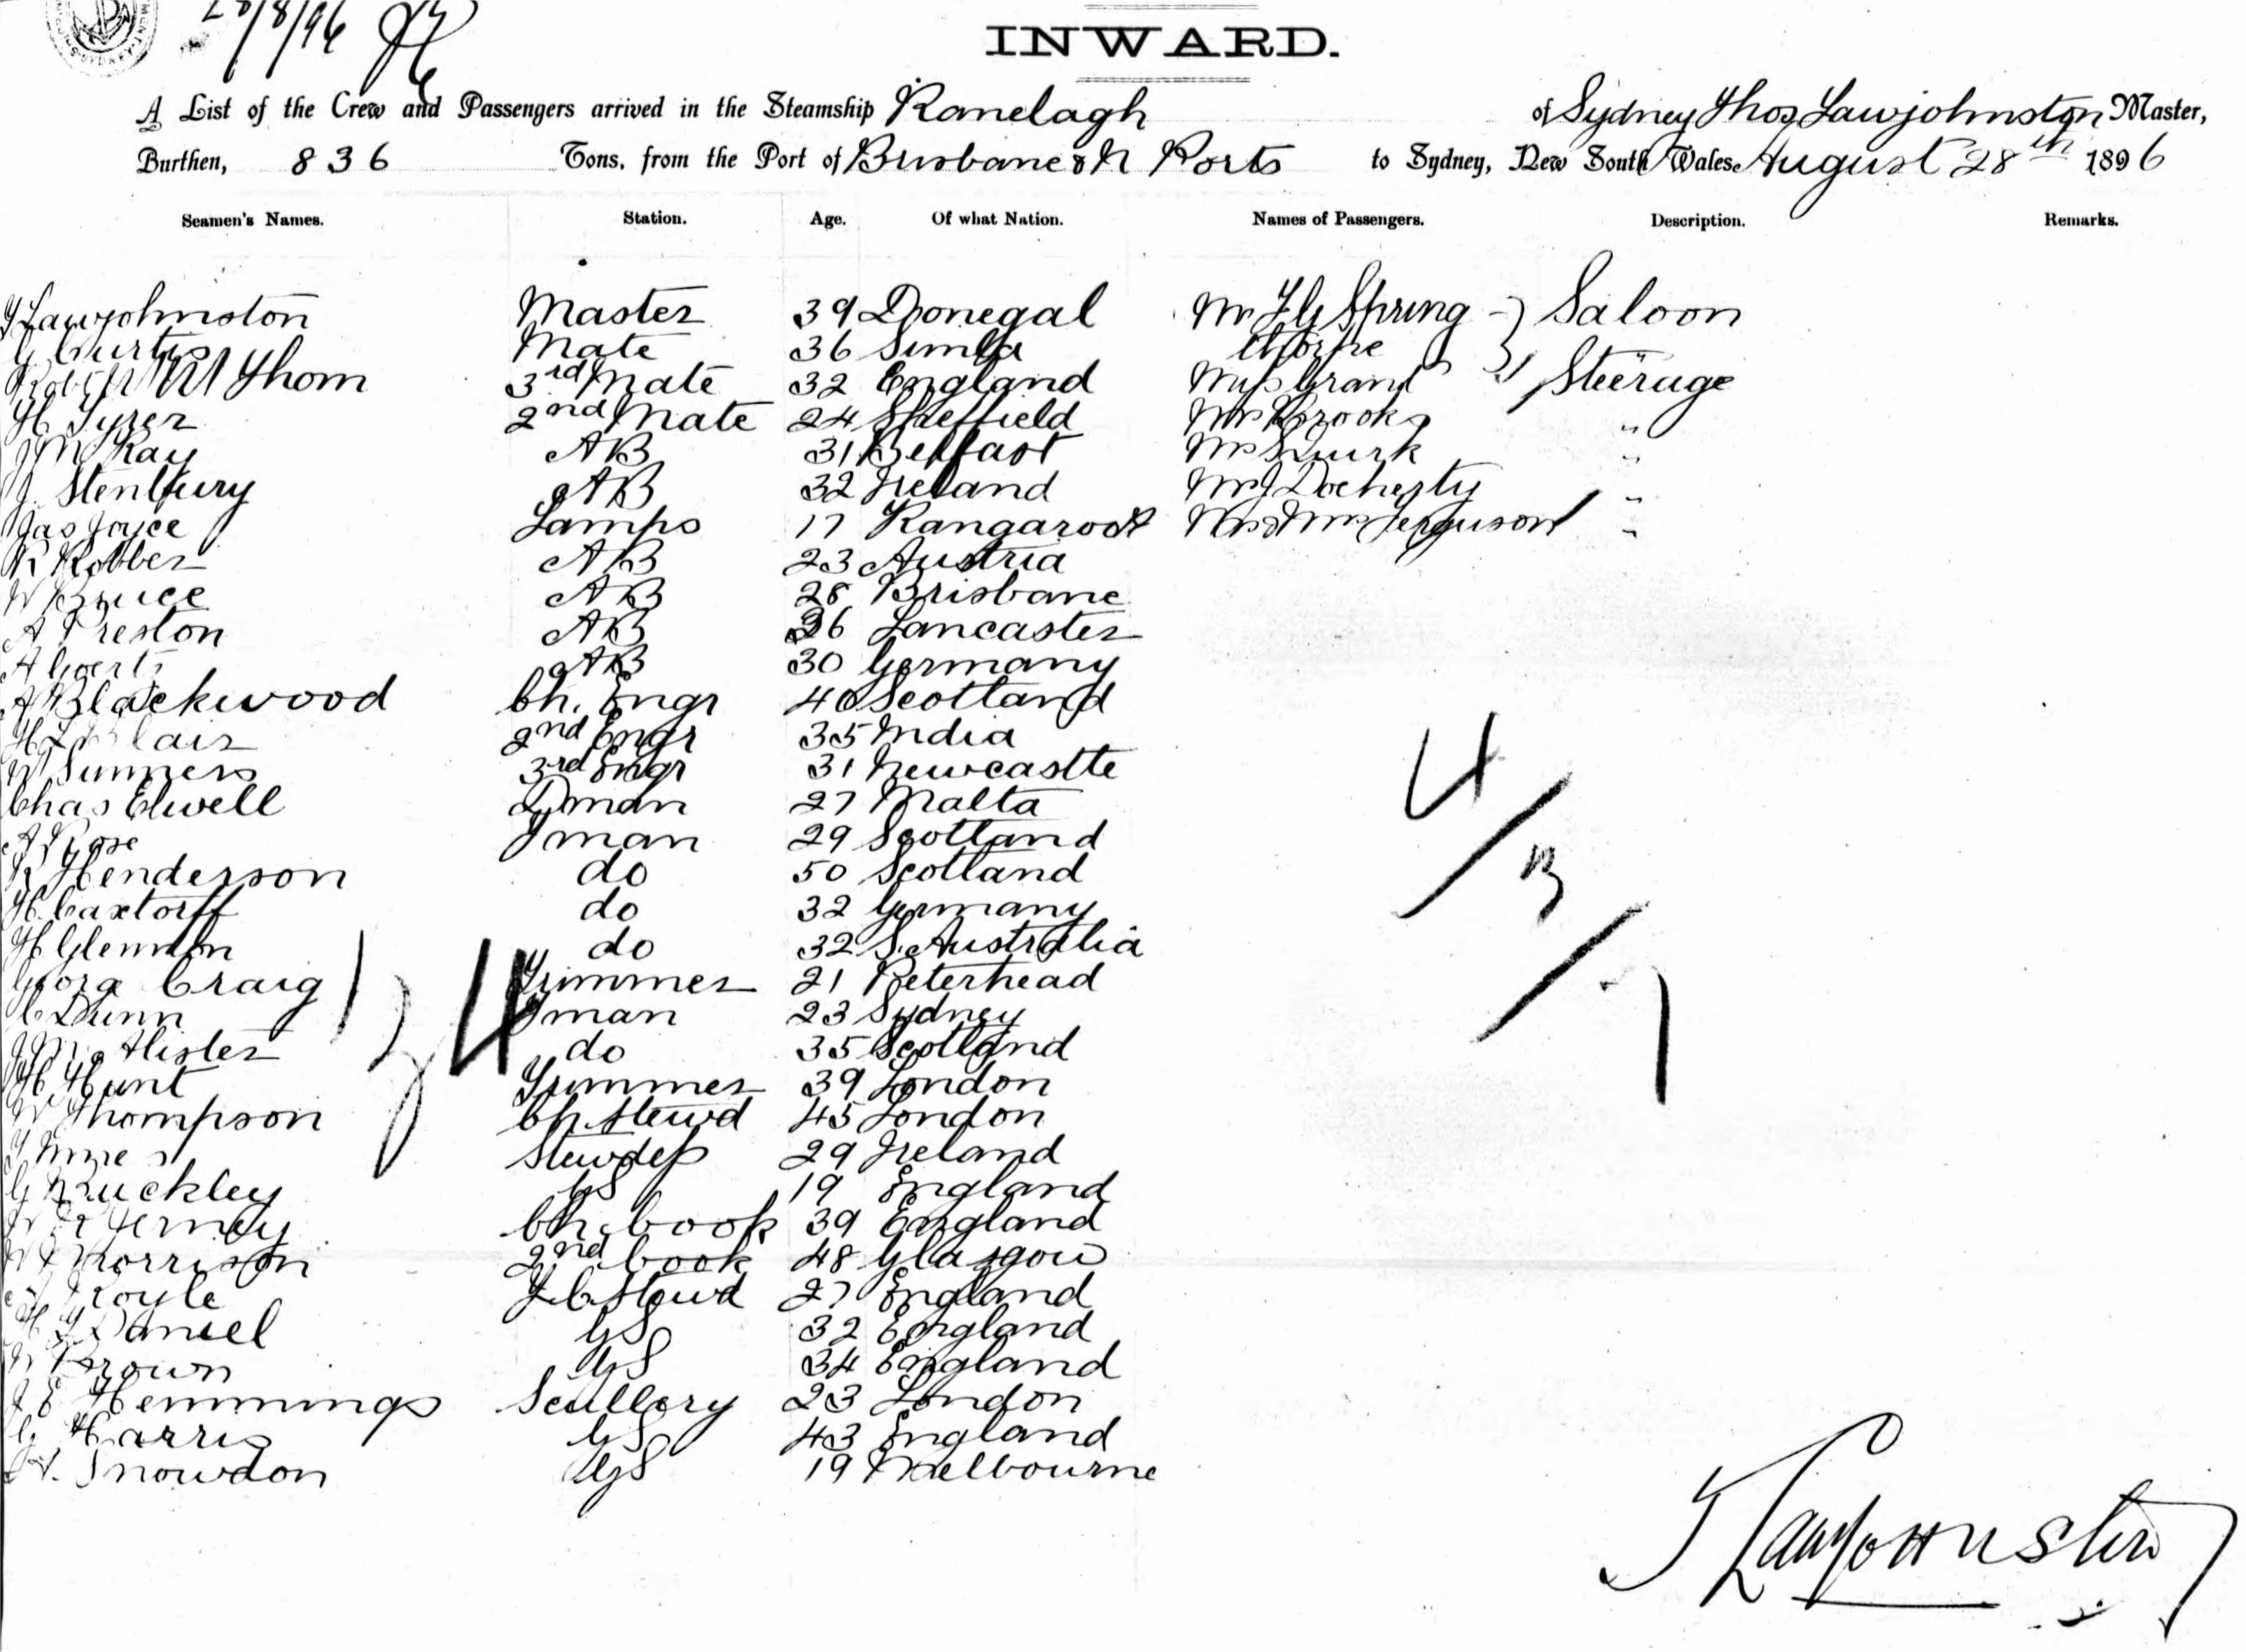 28/8/96
INWARD.
A List of the Crew and Passengers arrived in the Steamship Ranelagh of Sydney Thos Lawjohnston Master,
Burthen, 836 Tons, from the Port of Brisbane & N Ports to Sydney, New South Wales. August 28th 1896
Seamen's Names. Station. Age. Of what Nation. Names of Passengers. Description. Remarks.
T Lawjohnston Master 39 Donegal Mr F G Spring Saloon
G Curtis Mate 36 Simla Thorpe
Thom 3rd Mate 32 England Miss Grant Steerage
H Tyrer 2nd Mate 24 Sheffield Mrs Brooks "
J McKay AB 31 Belfast Quirk "
J. Stentbury AB 32 Ireland Mr J Docherty "
Jas Joyce Lamps 17 Ferguson "
R Robber AB 23 Austria
W Bruce AB 28 Brisbane
A Preston AB 36 Lancaster
A AB 30 Germany
A Blackwood Ch. Engr 40 Scotland
H Blair 2nd Engr 35 India
W Sumners 3rd Engr 31 Newcastle
Chas Elwell Dman 27 Malta
A Rose Fman 29 Scotland
R Henderson do 50 Scotland
H. Caxtorff do 32 Germany
H Glennon do 32 S. Australia
Georg Craig Trimmer 21 Peterhead
C Dunn Fman 23 Sydney
J McAlister do 35 Scotland
H Hunt Trimmer 39 London
W Thompson Ch Stewd 45 London
Stewdess 29 Ireland
G Buckley GS 19 England
W Ferney Ch. Cook 39 England
W Morrison 2nd Cook 48 Glasgow
A Royle F C Stewd 27 England
H Daniel GS 32 England
W Brown GS 34 England
J E Hemmings Scullery 23 London
G Harris GS 43 England
A. Snowdon GS 19 Melbourne
34
4/3/7
T Lawjohnston